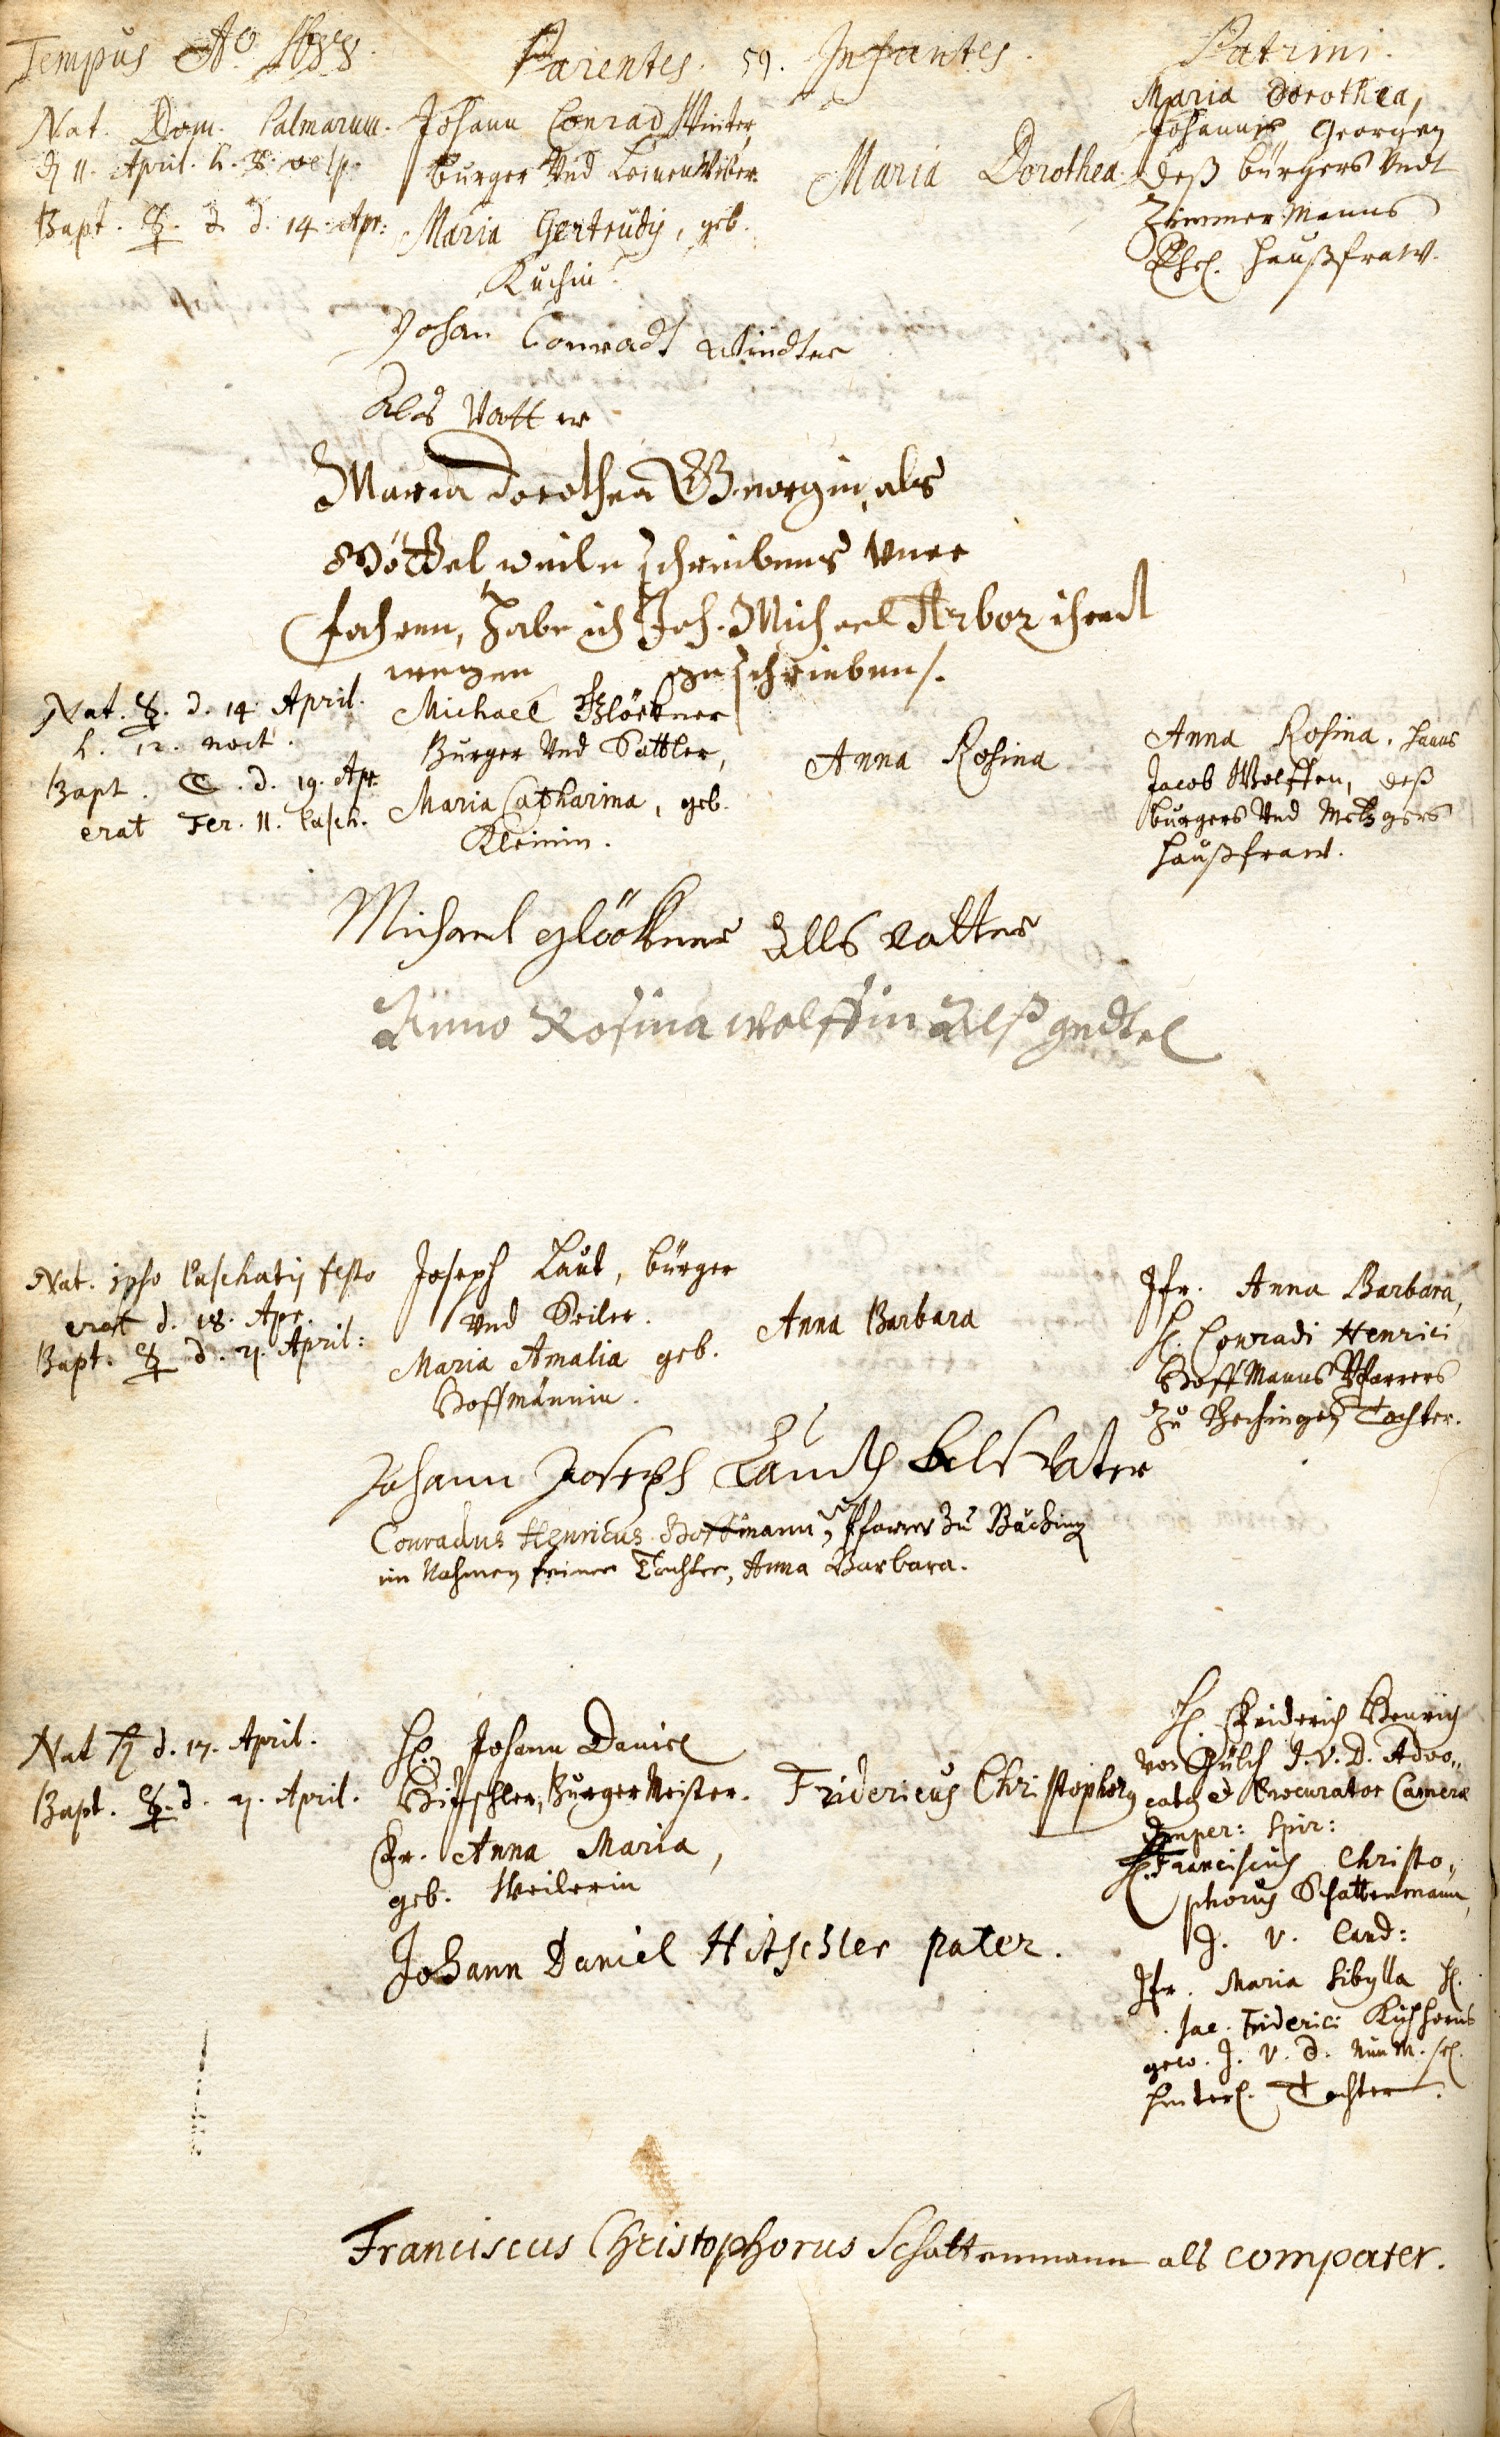 Tempus Aō 1688. Parentes. 59. Infantes. Patrini.
Nat. Dom. Palmarum.
d 11. April. h. 8. vesp.
Bapt. ☿. d. d. 14. Apr:
Johann Conrad Winter,
burger Vnd Leinenweber.
Maria Gertrudis, geb.
Kuchin.
Maria Dorothea.
Maria Dorothea,
Johannis Georgen
deß bürgers Vndt
Zimmer Manns
Ehel. Haußfraw.
Johan Conradt Windter
Als Vatter
Maria Dorothea Georgin, als
Göttel, weile schreibens Vner
fahren, habe ich Joh. Michael Arbor ihret
wegen geschrieben/.
Nat. ☿. d. 14 April.
h. 12. noct.
Bapt. ☾. d. 19. Apr.
erat Fer. II. Pasch.
Michael Glöckner
Burger Vnd Sattler,
Maria Catharina, geb.
Kleinin.
Anna Rosina
Anna Rosina, Hanns
Jacob Wolffen, deß
burgers Vnd Metzgers
Haußfraw.
Michael glöckner Alls Vatter
Anna Rosina Wolffin Alß gedtel
Nat. ipso Paschatis festo
erat d. 18. Apr.
Bapt. ☿ d. 21. April:
Joseph Laut, bürger
Vnd Seiler.
Maria Amalia geb.
Hoffmännin.
Anna Barbara
Jfr. Anna Barbara,
H. Conradi Henrici
Hoffmanns Pfarrers
Zu Bechingen Tochter.
Johann Joseph Lauth als Vater
Conradus Henricus Hoffmann, Pfarrer Zu Bäching
im Nahmen seiner Tochter, Anna Barbara.
Nat ♄ d. 17. April.
Bapt. ☿. d. 21. April.
H. Johann Daniel
Hitschler, Burger Meister.
Fr. Anna Maria,
geb. Weilerin
Fridericus Christophorus
H. Friderich Henrich
von Gülch J. V. D. Advo„
catus & Procurator Cameræ
Imper: Spir:
H. Franciscus Christo„
phorus Schattenmann,
J. V. Cand:
Jfr. Maria Sibylla H.
Jac. Friderici Kichhorns
gew. J. V. D. Nun M. sel.
hinterl. Tochter.
Johann Daniel Hitschler pater.
Franciscus Christophorus Schattenmann als compater.